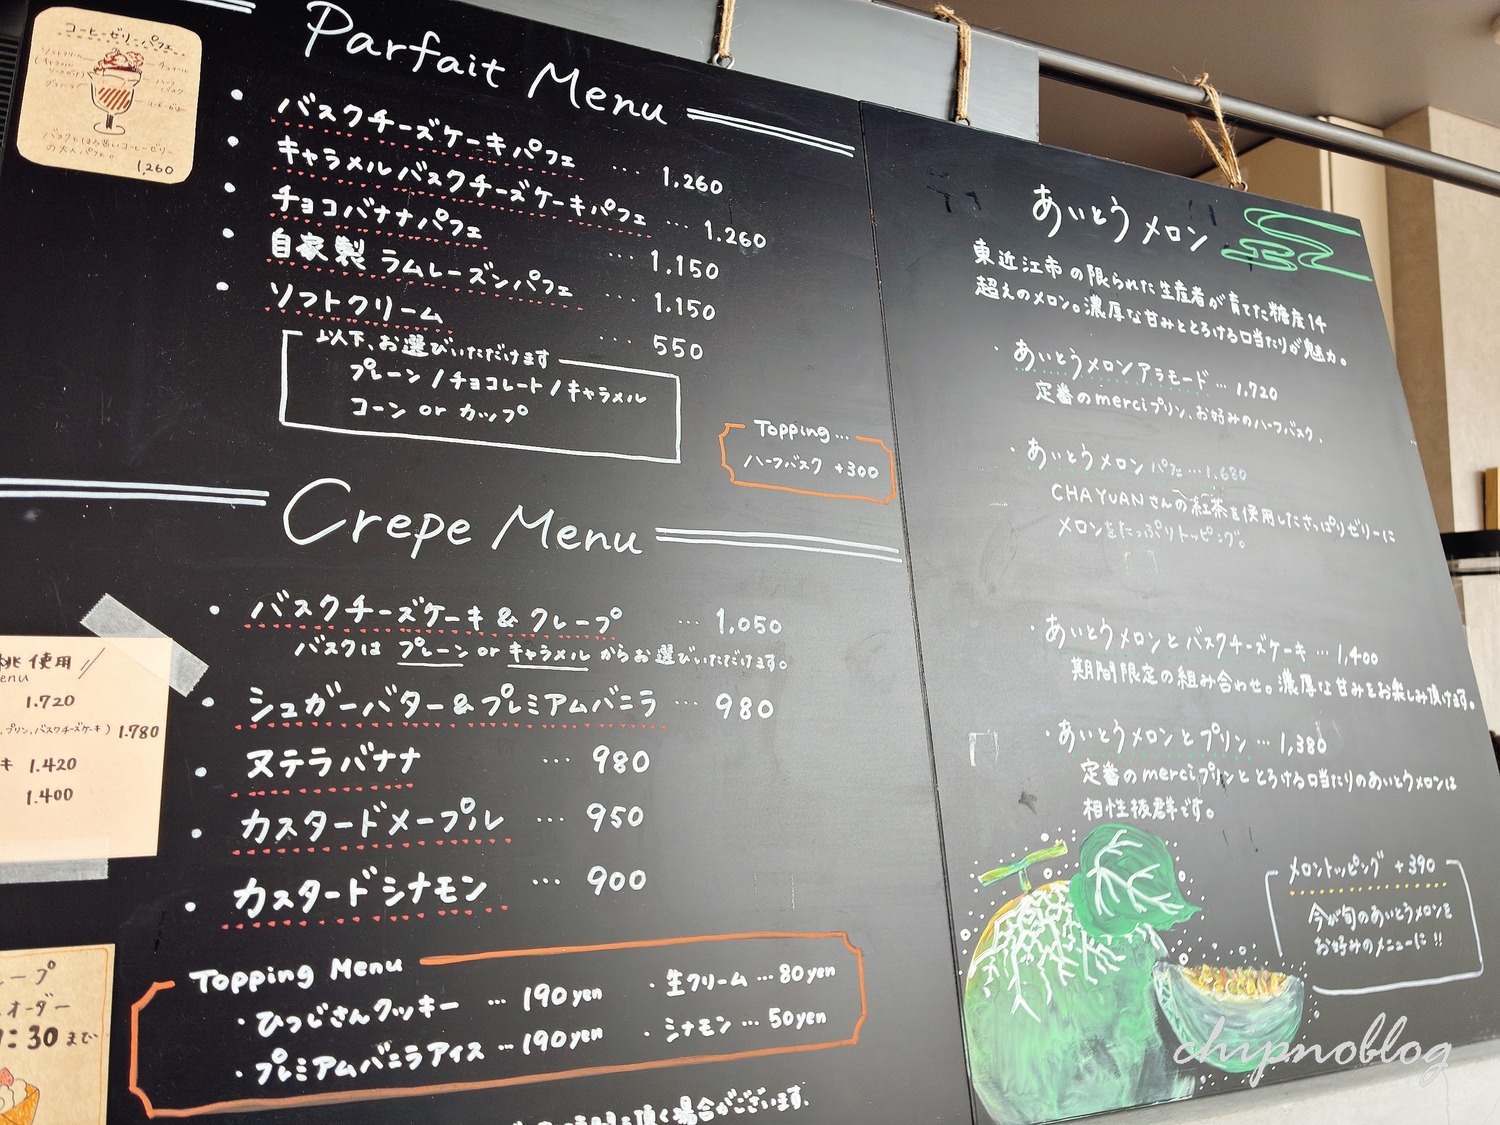 コーヒーゼリーパフェ
バスクとほろ苦いコーヒーゼリー
の大人パフェ。
1,260
Parfait Menu
・バスクチーズケーキパフェ … 1,260
・キャラメルバスクチーズケーキパフェ … 1,260
・チョコバナナパフェ … 1,150
・自家製 ラムレーズンパフェ … 1,150
・ソフトクリーム … 550
以下、お選びいただけます
プレーン / チョコレート / キャラメル
コーン or カップ
Topping…
ハーフバスク +300
Crepe Menu
・バスクチーズケーキ & クレープ … 1,050
バスクは プレーン or キャラメル からお選びいただけます。
・シュガーバター & プレミアムバニラ … 980
・ヌテラバナナ … 980
・カスタードメープル … 950
・カスタードシナモン … 900
Topping Menu
・ひつじさんクッキー … 190yen
・プレミアムバニラアイス … 190yen
・生クリーム … 80yen
・シナモン … 50yen
頂く場合がございます。
桃使用
enu
1.720
プリン、バスクチーズケーキ) 1.780
キ 1.420
1.400
レープ
オーダー
:30まで
あいとうメロン
東近江市の限られた生産者が育てた糖度14
超えのメロン。濃厚な甘みととろける口当たりが魅力。
・あいとうメロンアラモード … 1,720
定番のmerciプリン、お好みのハーフバスク、
・あいとうメロンパフェ … 1,680
CHAYUANさんの紅茶を使用したさっぱりゼリーに
メロンをたっぷりトッピング。
・あいとうメロンとバスクチーズケーキ … 1,400
期間限定の組み合わせ。濃厚な甘みをお楽しみ頂けます。
・あいとうメロンとプリン … 1,380
定番のmerciプリンととろける口当たりのあいとうメロンは
相性抜群です。
メロントッピング +390
今が旬のあいとうメロンを
お好みのメニューに!!
chipnoblog